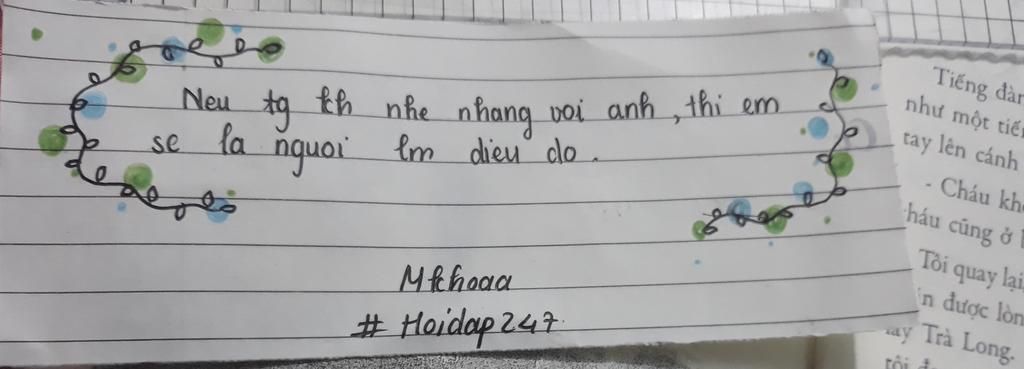 Neu tg kh nhe nhang voi anh, thi em
se la nguoi lm dieu do.
Mkhoaa
# Hoidap247
Tiếng đàn
như một tiế
tay lên cánh
- Cháu kh
háu cũng ở
Tôi quay lại
n được lòn
Trà Long.
rồi